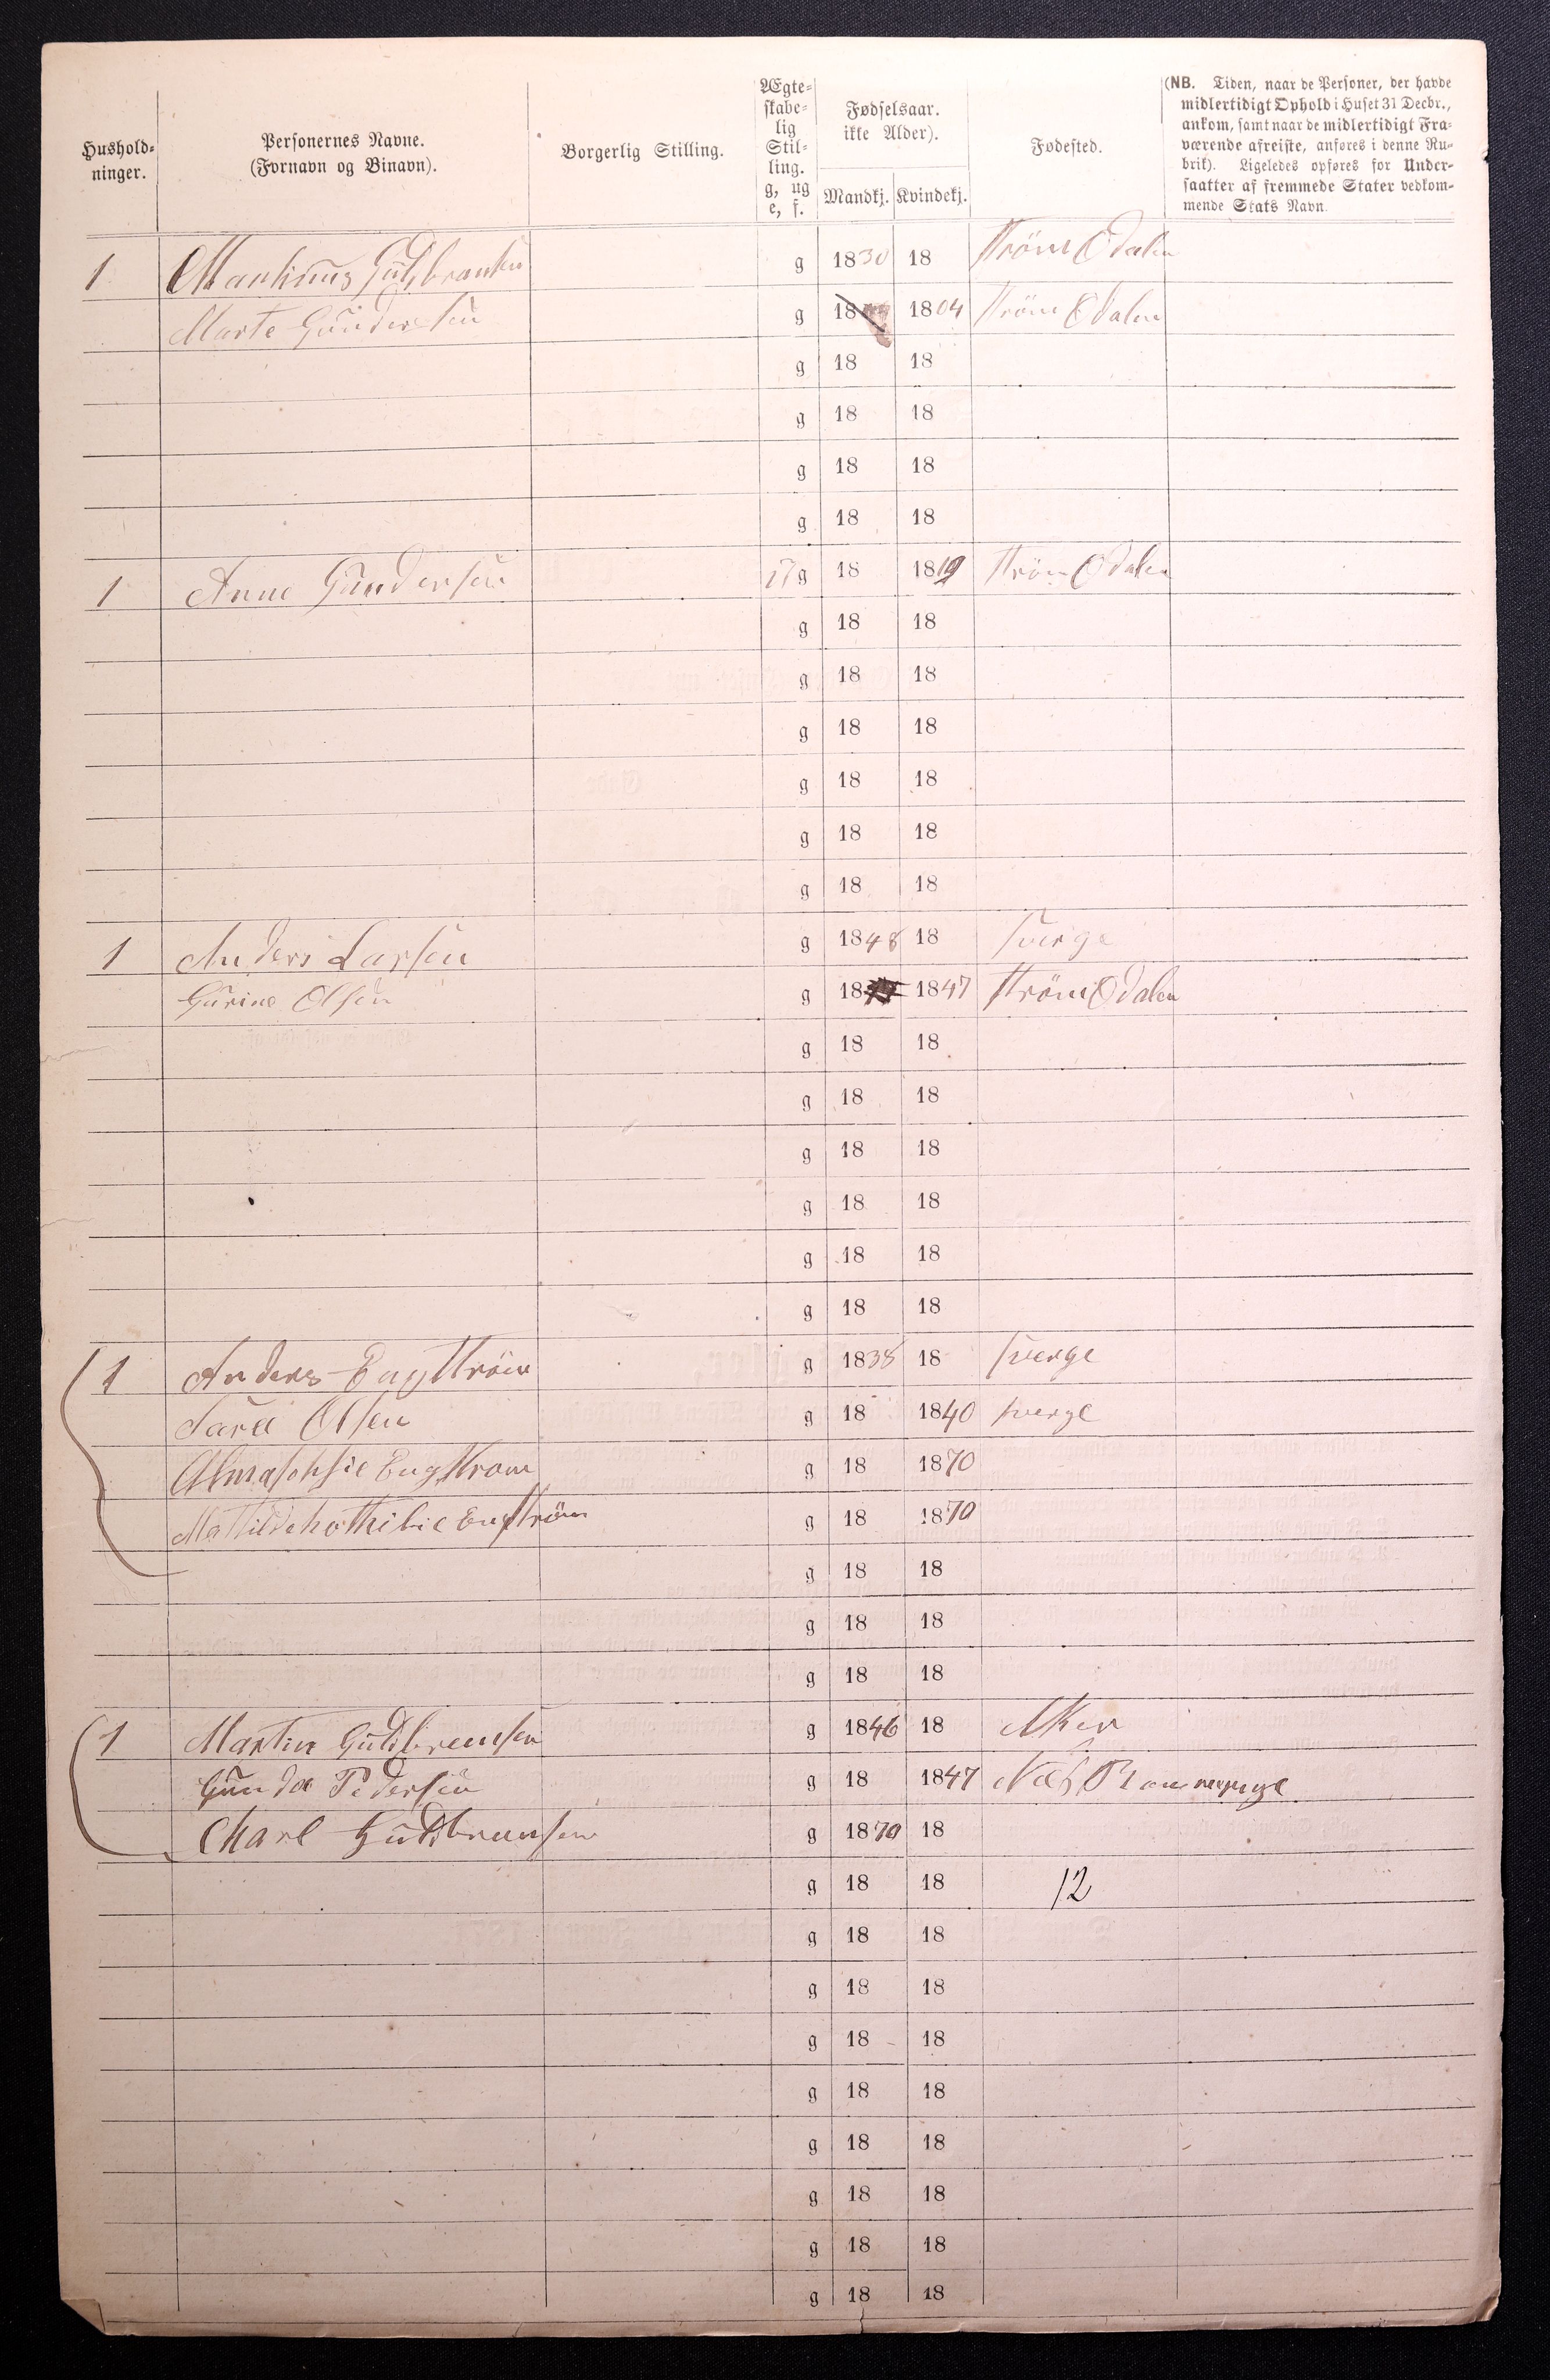 Hushold-
ninger.
Personernes Navne.
(Fornavn og Binavn).
Borgerlig Stilling.
Ægte-
skabe-
lig
Stil-
ling.
g, ug
e, f.
Fødselsaar.
ikke Alder).
Mandkj. Kvindekj.
Fødested.
(NB. Tiden, naar de Personer, der havde
midlertidigt Ophold i Huset 31 Decbr.,
ankom, samt naar de midlertidigt Fra-
værende afreiste, anføres i denne Ru-
brik). Ligeledes opføres for Under-
saatter af fremmede Stater vedkom-
mende Stats Navn.
1 Martinus Gulbransen g 1830 18 Ström Odalen
Marte Gundersen g 18 1804 Ström Odalen
g 18 18
g 18 18
g 18 18
g 18 18
1 Anne Gundersen g 18 1819 Ström Odalen
g 18 18
g 18 18
g 18 18
g 18 18
g 18 18
g 18 18
1 Anders Larsen g 1848 18 Sverge
Gurine Olsen g 18 1847 Ström Odalen
g 18 18
g 18 18
g 18 18
g 18 18
g 18 18
g 18 18
1 Anders Engström g 1838 18 Sverge
Sara Olsen g 18 1840 Sverge
Alma Engstrom g 18 1870
Matilde Engström g 18 1870
g 18 18
g 18 18
g 18 18
1 Martin Guldbrensen g 1846 18 Aker
Gunda Pedersen g 18 1847 Næs Romerige
Charl Guldbransen g 1870 18
g 18 18 12
g 18 18
g 18 18
g 18 18
g 18 18
g 18 18
g 18 18
g 18 18
g 18 18